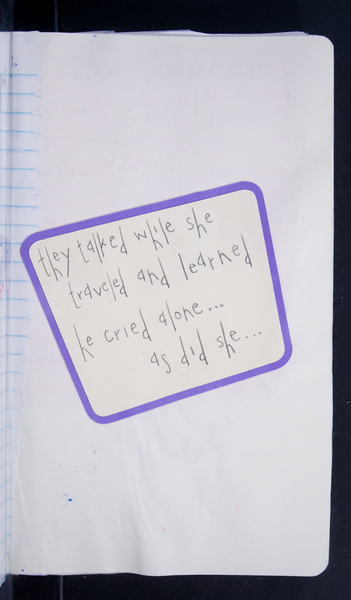 they talked while she
traveled and learned
he cried alone...
as did she...